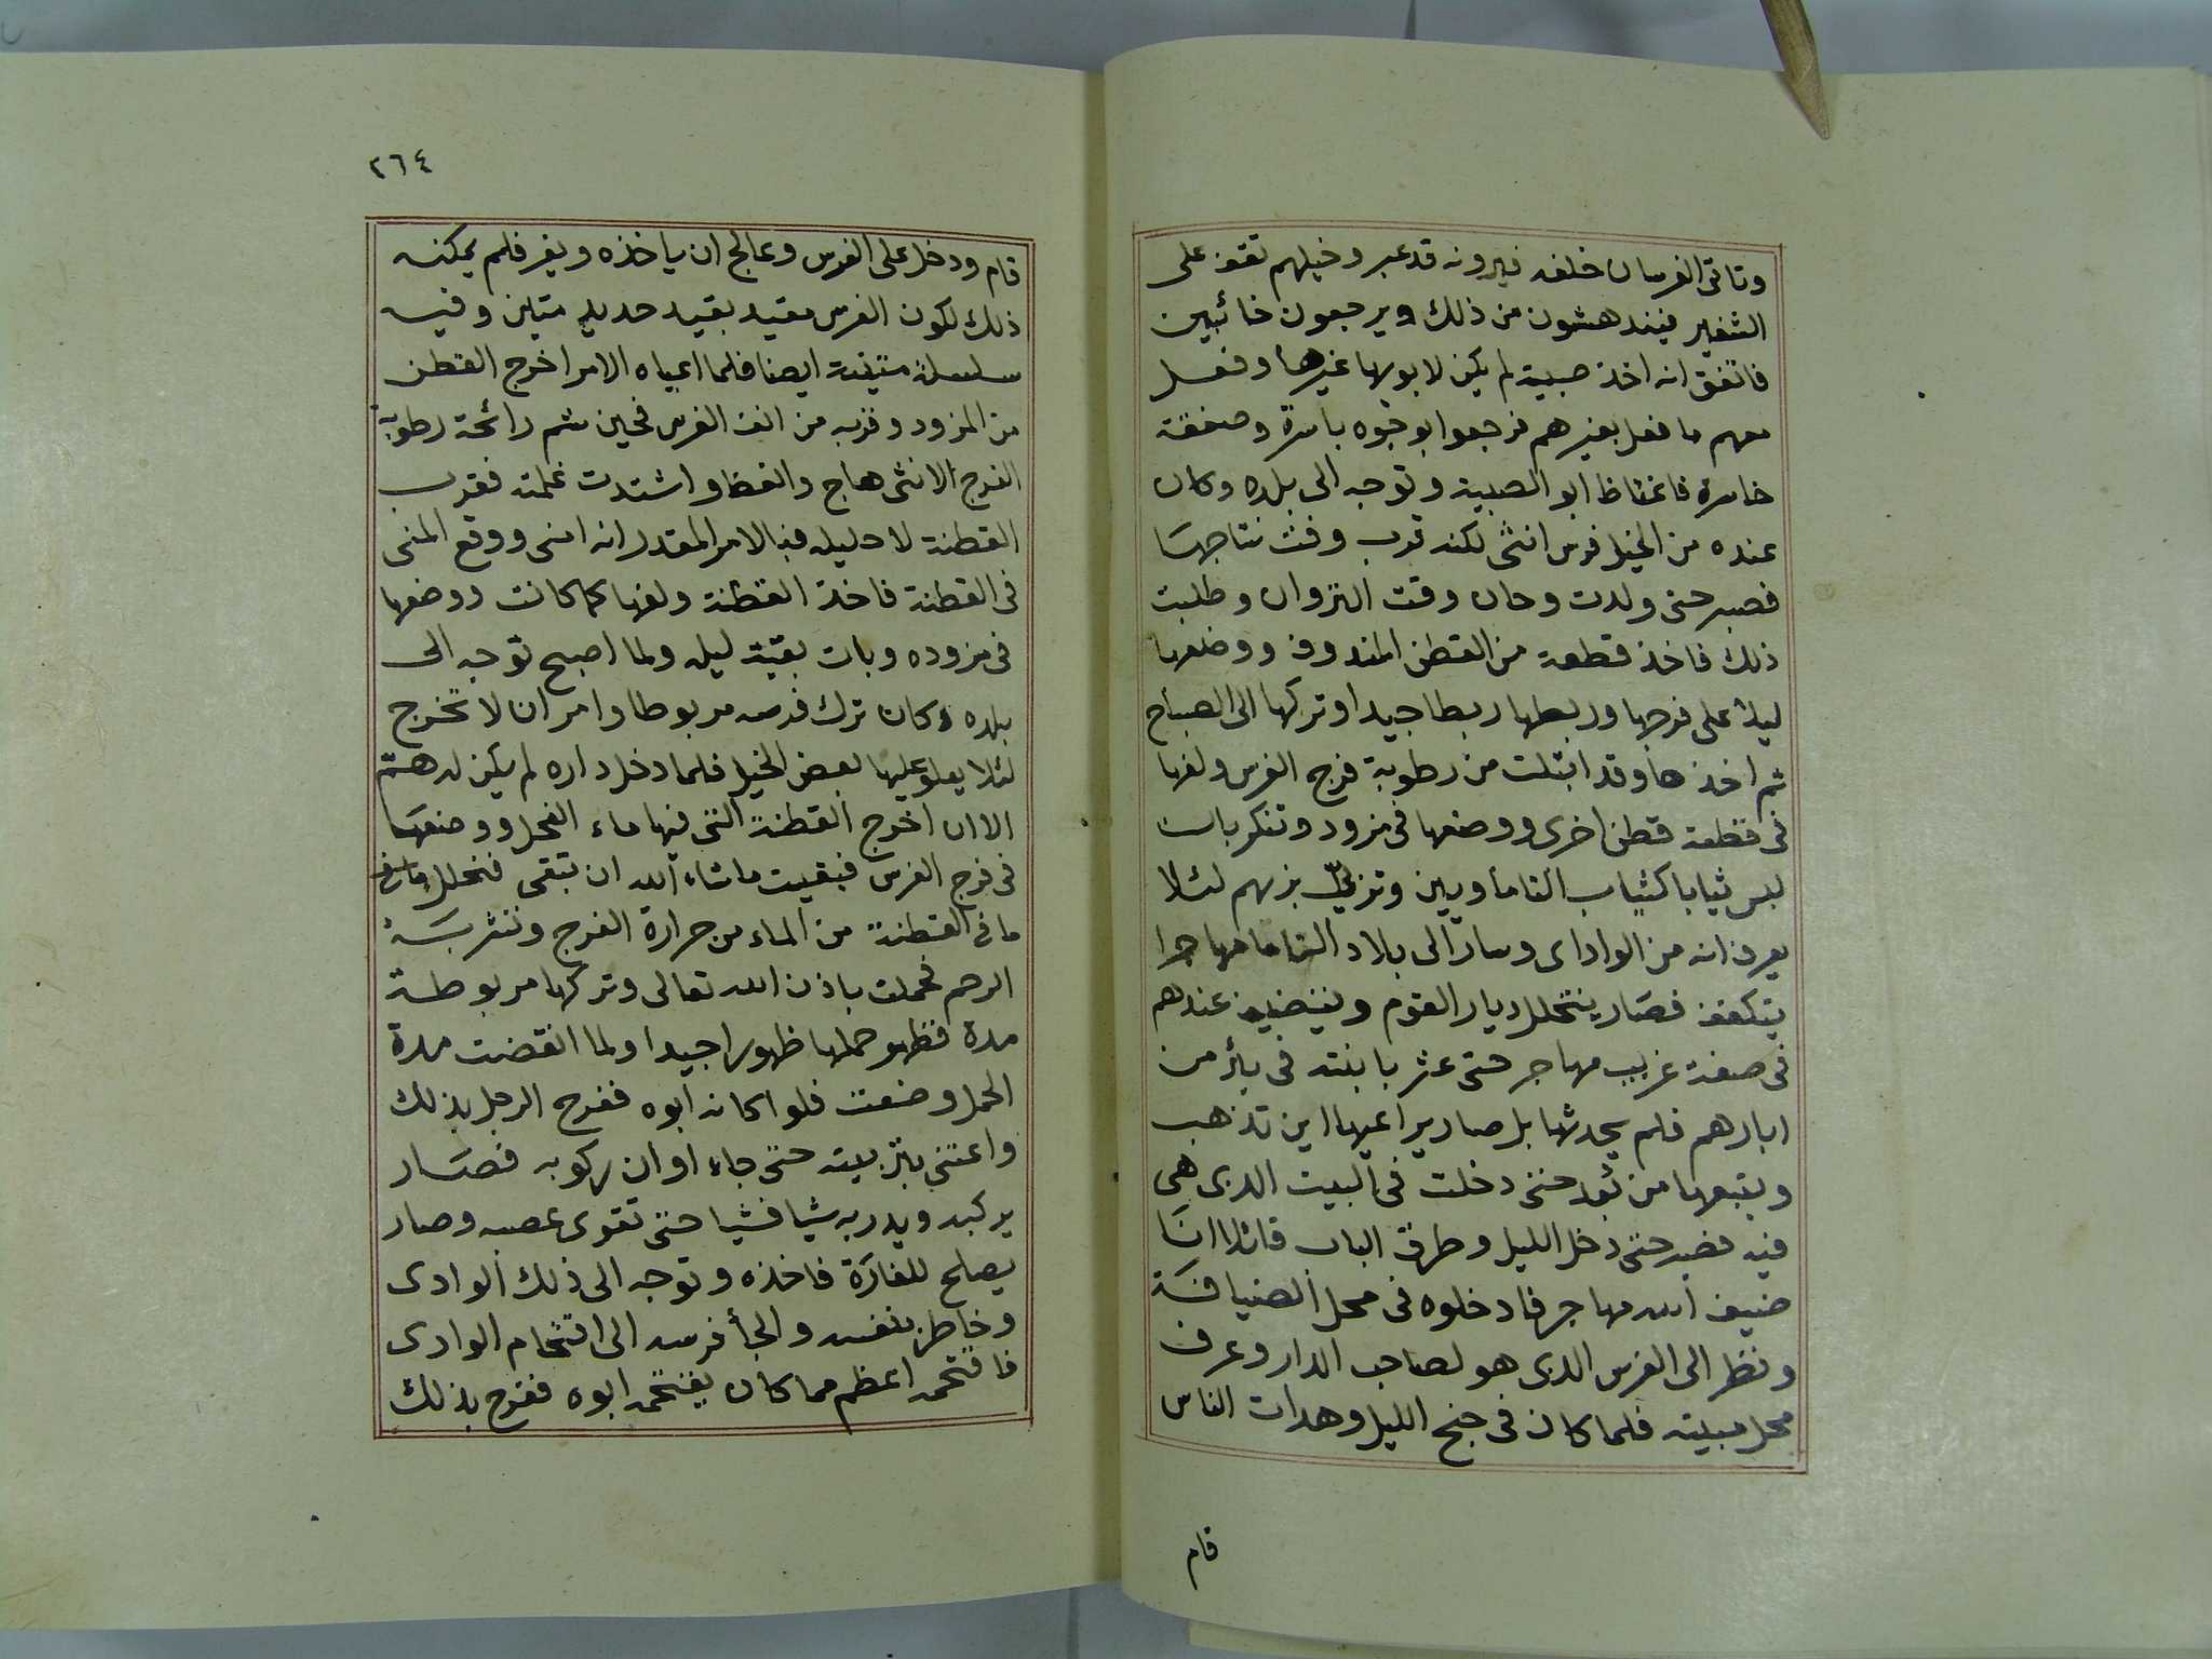 وتاتى الفرسان خلفه فيرونه قد عبر وخيلهم تقف على
الشفير فيندهشون من ذلك ويرجعون خائبين
فاتفق انه اخذ صبية لم يكن لابويها غيرها وفعل
معهم ما فعل بغيرهم فرجعوا بوجوه باسرة وصفقة
خاسرة فاغتاظ ابو الصبية وتوجه الى بلده وكان
عنده من الخيل فرس انثى لكنه قرب وقت نتاجها
فصبر حتى ولدت وحان وقت النزوان وطلبت
ذلك فاخذ قطعة من القطن المندوف ووضعها
ليلا على فرجها وربطها ربطا جيدا وتركها الى الصباح
ثم اخذها وقد ابتلت من رطوبة فرج الفرس ولفها
فى قطعة قطن اخرى ووضعها فى مزود وتنكر بان
لبس ثيابا كثياب التاماويين وتزيّ بزيهم لئلا
يعرف انه من الواداى وسار الى بلاد التاما مهاجرا
يتكفف فصار يتخلل ديار القوم ويتضيف عندهم
فى صفة غريب مهاجر حتى عثر بابنته فى بأر من
ابارهم فلم يحدثها بل صار يراعيها اين تذهب
ويتبعها من بُعد حتى دخلت فى البيت الذى هى
فيه فصبر حتى دخل الليل وطرق الباب قائلا انا
ضيف الله مهاجر فادخلوه فى محل الضيافة
ونظر الى الفرس الذى هو لصاحب الدار وعرف
محل مبيته فلما كان فى جنح الليل وهدات الناس
قام
٢٦٤
قام ودخل على الفرس وعالج ان ياخذه ويفر فلم يمكنه
ذلك لكون الفرس مقيد بقيد حديد متين وفيه
سلسلة متينة ايضا فلما اعياه الامر اخرج القطن
من المزود وقربه من انف الفرس فحين شم رائحة رطوبة
الفرج الانثى هاج وانعظ واشتدت غلمته فقرب
القطنة لاحليله فبالامر المقدر انه امنى ووقع المنى
فى القطنة فاخذ القطنة ولفها كما كانت ووضعها
فى مزوده وبات بقية ليله ولما اصبح توجه الى
بلده وكان ترك فرسه مربوطا وامر ان لا تخرج
لئلا يعلو عليها بعض الخيل فلما دخل داره لم يكن له همّ
الا ان اخرج القطنة التى فيها ماء الفحل ووضعها
فى فرج الفرس فبقيت ماشاء الله ان تبقى فتحلل
ما فى القطنة من الماء من حرارة الفرج وتشربه
الرحم فحملت باذن الله تعالى وتركها مربوطة
مدة فظهر حملها ظهورا جيدا ولما انقضت مدة
الحمل وضعت فلوا كانه ابوه ففرح الرجل بذلك
واعتنى بتربيته حتى جاء اوان ركوبه فصار
يركبه ويدربه شيا فشيا حتى تقوى عصبه وصار
يصلح للغارة فاخذه وتوجه الى ذلك الوادى
وخاطر بنفسه والجأ فرسه الى اقتحام الوادى
فاقتحمه اعظم مما كان يقتحمه ابوه ففرح بذلك